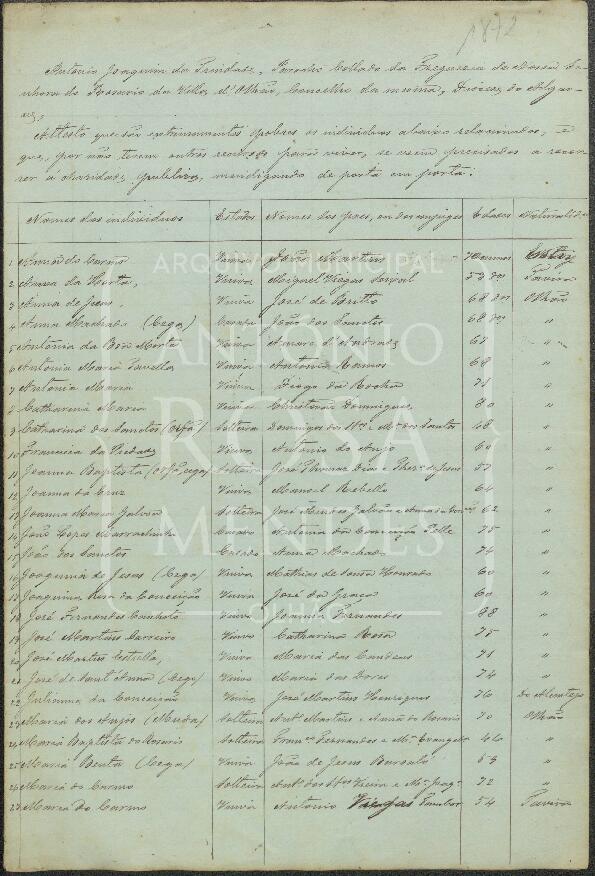 1872
Antonio Joaquim da Trindade, Parocho Collado da Freguesia de Nossa Se-
nhora do Rosario da Villa d'Olhão, Concelho da mesma, Diocese do Algar-
ve,
Attesto que são extremamente pobres os individuos abaixo relacionados, e
que, por não terem outros recursos para viver, se veem precisados a recor-
rer á charidade publica, mendigando de porta em porta.
Nomes dos individuos Estados Nomes dos paes, ou dos conjuges Edades Naturalidade
1 do Carmo Viuva João Martins 70 annos
2 Anna da Horta, Viuva Miguel Viegas 53 dos Tavira
3 Anna de Jesus, Viuva José de Britto 68 dos Olhão
4 Anna Machado (Cega) Casada João dos Sanctos 68 dos "
5 Antonia da Boa Morte Viuva Amaro d'Andrade 67 "
6 Antonia Maria Viuva Antonio Ramos 68 "
7 Antonia Maria Viuva Diogo da Rocha 71 "
8 Catharina Maria Viuva Christovão Domingues, 80 "
9 Catharina dos Sanctos (Orfã) Solteira Domingos dos e Mª dos Santos 48 "
10 Francisca da Piedade Viuva Antonio do Anjo 60 "
11 Joanna Baptista (Orfã, cega) Solteira José Thomaz Dias e de Jesus 57 "
12 Joanna da Cruz Viuva Manoel Rebello 64 "
13 Joanna Maria Galvoa Solteira José Mendes Galvão e Anna da 62 "
14 João Lopes Marrachinho Casado Antonia da Conceição Pelle 75 "
15 João dos Sanctos Casado Anna Machado 74 "
16 Joaquina de Jesus (Cega) Viuva Mathias de Sousa Honrado 60 "
17 Joaquina Rosa da Conceição Viuva José da Graça 60 "
18 José Fernandes Canhoto Viuvo Joanna Fernandes 88 "
19 José Martins Barreiro Viuvo Catharina Rosa 75 "
20 José Martins Estrella, Viuvo Maria das Candeas 71 "
21 José de Sant'Anna (Cego) Viuvo Maria das Dores 74 "
22 Julianna da Conceição Viuva José Martins Henriques 76 do Alemtejo
23 Maria dos Anjos (Muda) Solteira Antº Martins e Anna do Rosario 70 Olhão
24 Maria Baptista do Rosario Solteira Franco Fernandes e Mª Evangelista 46 "
25 Maria Benta (Cega) Viuva João de Jesus 53 "
26 Maria do Carmo Solteira Antº dos Vieira e Mª 72 "
27 Maria do Carmo Viuva Antonio Viegas 54 Tavira
ARQUIVO MUNICIPAL
ANTÓNIO
ROSA
MENDES
OLHÃO